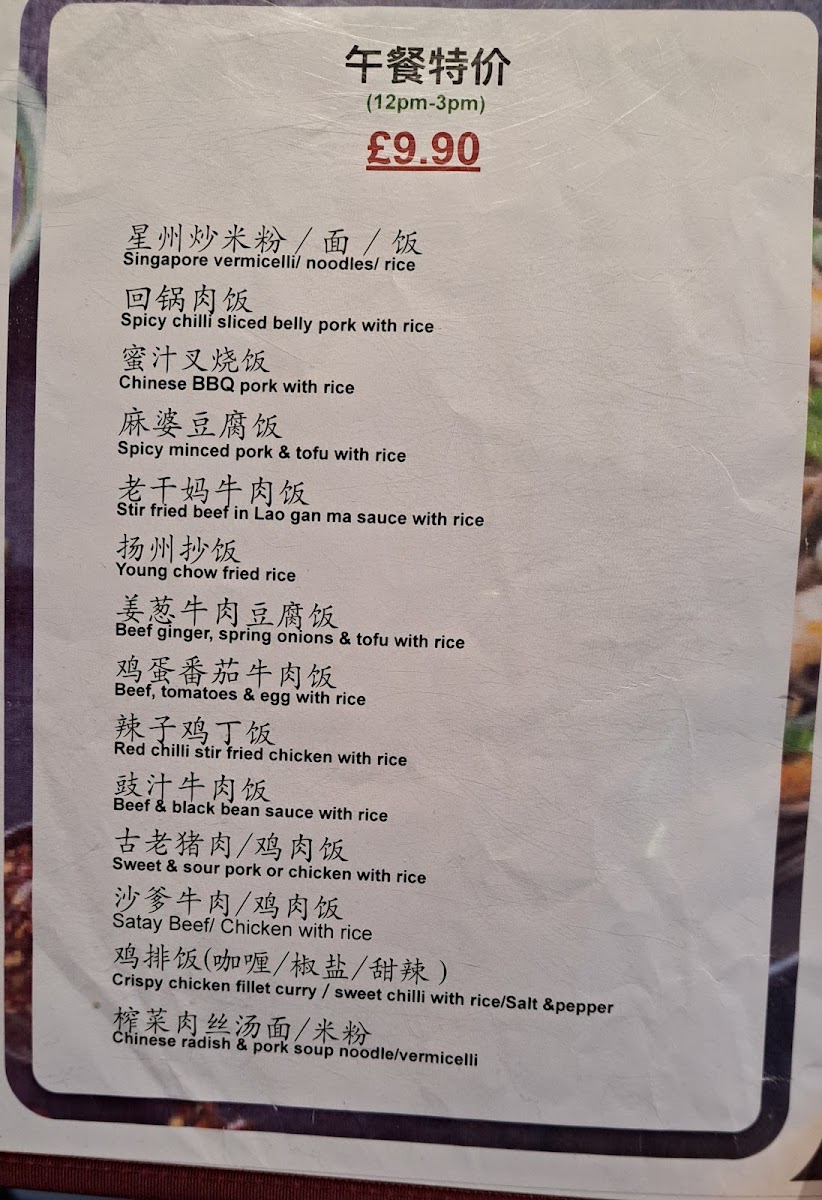 午餐特价
(12pm-3pm)
£9.90
星州炒米粉 / 面 / 饭
Singapore vermicelli/ noodles/ rice
回锅肉饭
Spicy chilli sliced belly pork with rice
蜜汁叉烧饭
Chinese BBQ pork with rice
麻婆豆腐饭
Spicy minced pork & tofu with rice
老干妈牛肉饭
Stir fried beef in Lao gan ma sauce with rice
扬州抄饭
Young chow fried rice
姜葱牛肉豆腐饭
Beef ginger, spring onions & tofu with rice
鸡蛋番茄牛肉饭
Beef, tomatoes & egg with rice
辣子鸡丁饭
Red chilli stir fried chicken with rice
豉汁牛肉饭
Beef & black bean sauce with rice
古老猪肉/鸡肉饭
Sweet & sour pork or chicken with rice
沙爹牛肉/鸡肉饭
Satay Beef/ Chicken with rice
鸡排饭(咖喱/椒盐/甜辣 )
Crispy chicken fillet curry / sweet chilli with rice/Salt &pepper
榨菜肉丝汤面/米粉
Chinese radish & pork soup noodle/vermicelli